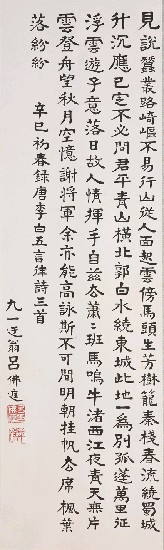 見說蠶叢路崎嶇不易行山從人面起雲傍馬頭生芳樹籠秦棧春流繞蜀城
升沉應已定不必問君平青山橫北郭白水繞東城此地一為別孤蓬萬里征
浮雲遊子意落日故人情揮手自茲去蕭〻班馬鳴牛渚西江夜青天無片
雲登舟望秋月空憶謝將軍余亦能高詠斯不可聞明朝挂帆去席楓葉
落紛紛
辛巳初春録唐李白五言律詩三首
九一迂翁呂佛庭